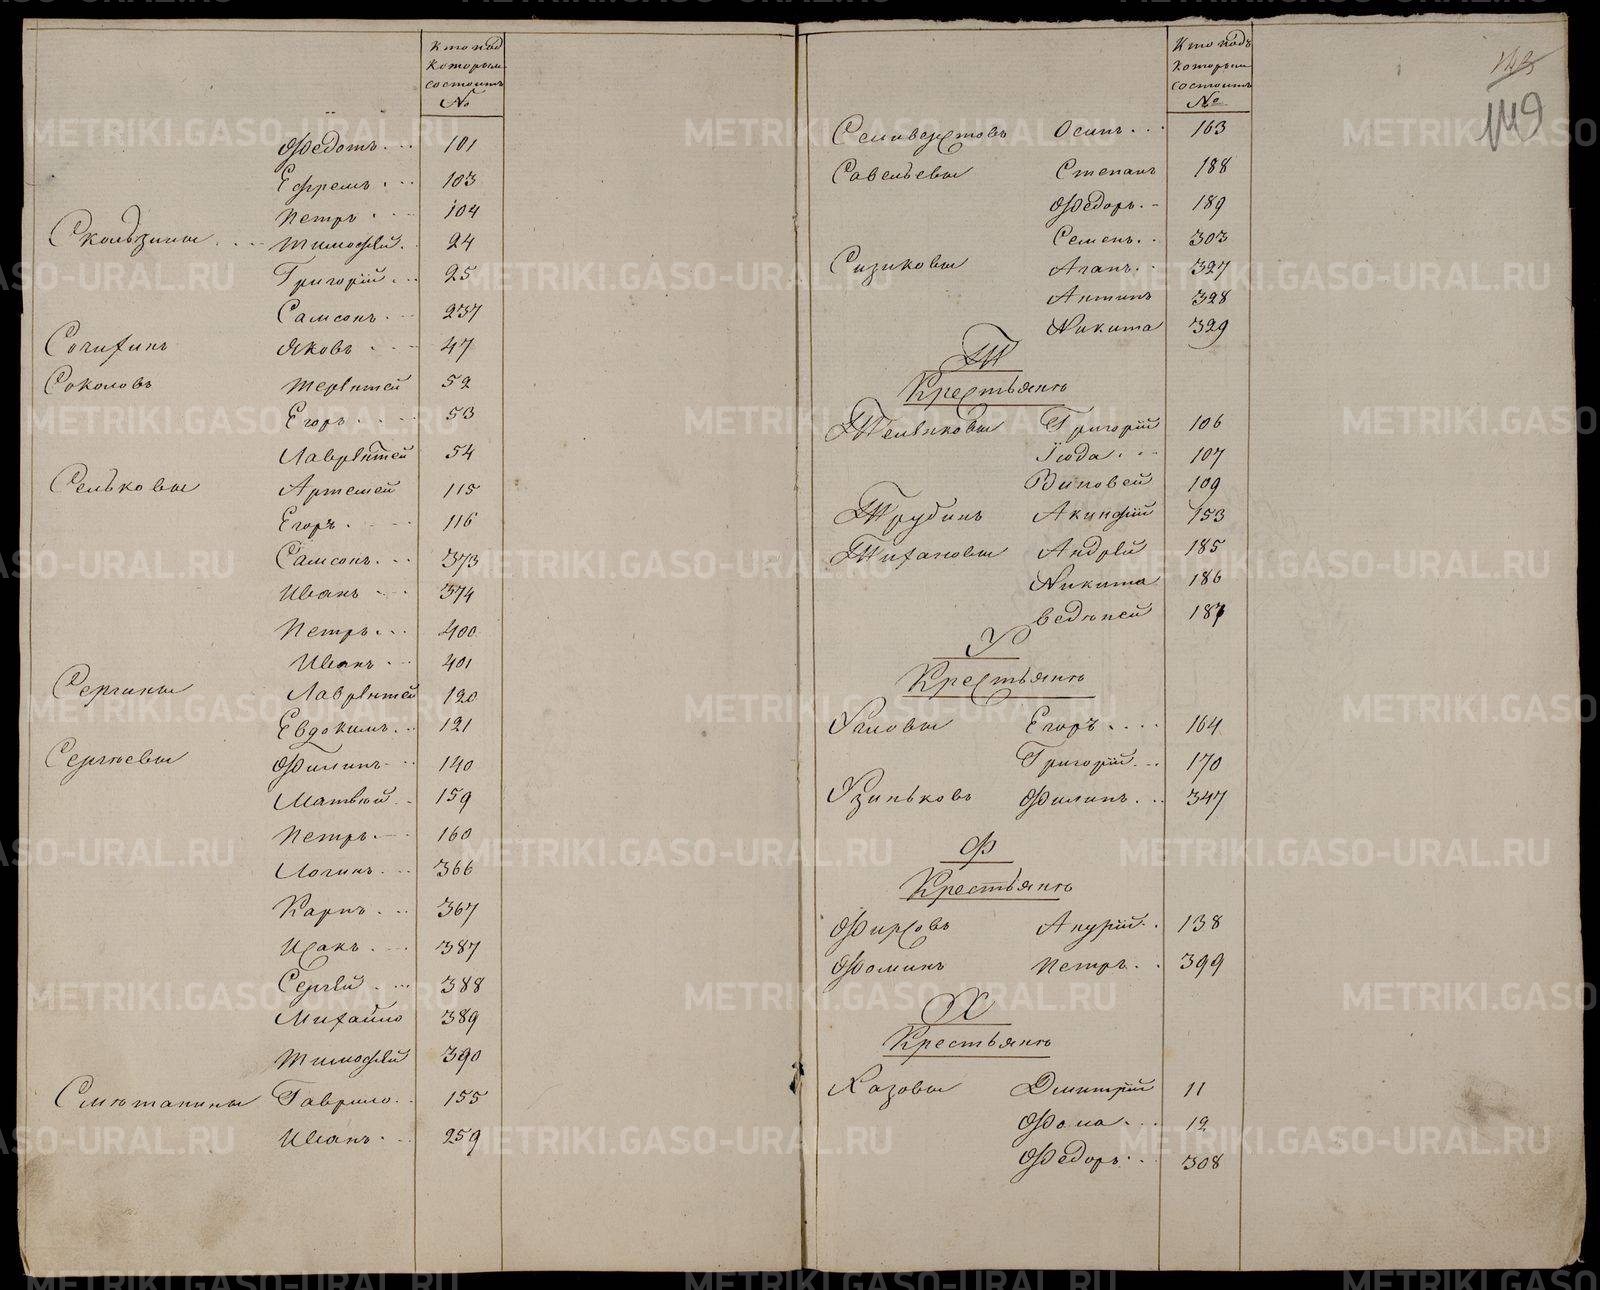 Кто подъ
которым
состоитъ
№
Ѳедотъ... 101
Ефремъ... 103
Петръ... 104
Скользины... Тимофѣй. 24
Григорій... 25
Самсонъ.. 237
Сочихинъ Яковъ... 47
Соколовъ Терѣнтей 52
Егоръ... 53
Лаврѣнтей 54
Сельковы Артемей 115
Егоръ... 116
Самсонъ... 373
Иванъ... 374
Петръ... 400
Иванъ... 401
Сергины Лаврѣнтей 120
Евдокимъ... 121
Сергѣевы Филипъ... 140
Матвѣй.. 159
Петръ... 160
Логинъ... 366
Карпъ... 367
Исакъ... 387
Сергѣй... 388
Михайло 389
Тимофѣй 390
Смѣтанины Гаврило.. 155
Иванъ... 259
Кто подъ
которым
состоитъ
№
149
Селиверстовъ Осипъ... 163
Савельевы Степанъ 188
Ѳедоръ.. 189
Семенъ.. 303
Сизиковы Агапъ.. 327
Антипъ 328
Никита 329
Т
Крестьянѣ
Григорій 106
Іюда... 107
Зиновей 109
Трубинъ Акинфій 153
Тихановы Андрѣй 185
Никита 186
187
У
Крестьянѣ
Угловы Егоръ.... 164
Григорій... 170
Узиньковъ Филипъ... 347
Ф
Крестьянѣ
Фирсовъ 138
Фоминъ Петръ.. 399
Х
Крестьянѣ
Хазовы Дмитрій 11
Фома... 12
Федоръ... 308
METRIKI.GASO-URAL.RU